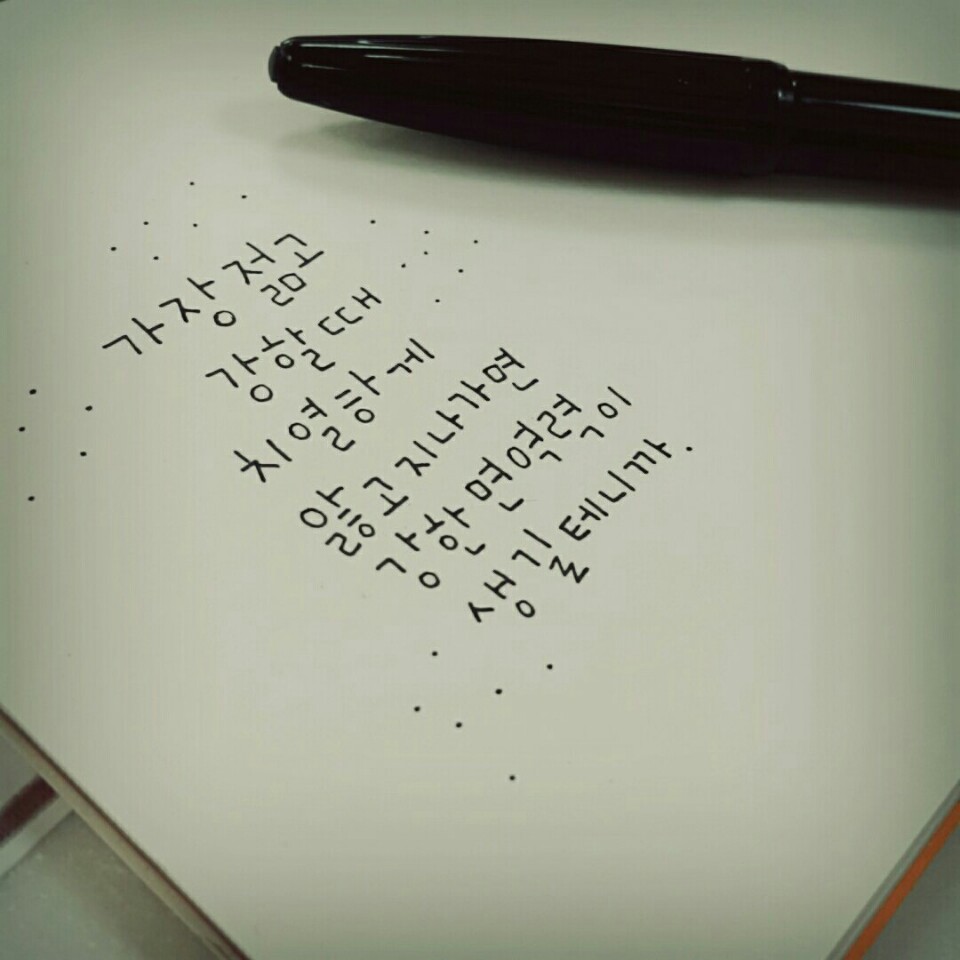 가장 젊고
강할 때
치열하게
앓고 지나가면
강한 면역력이
생길 테니까.